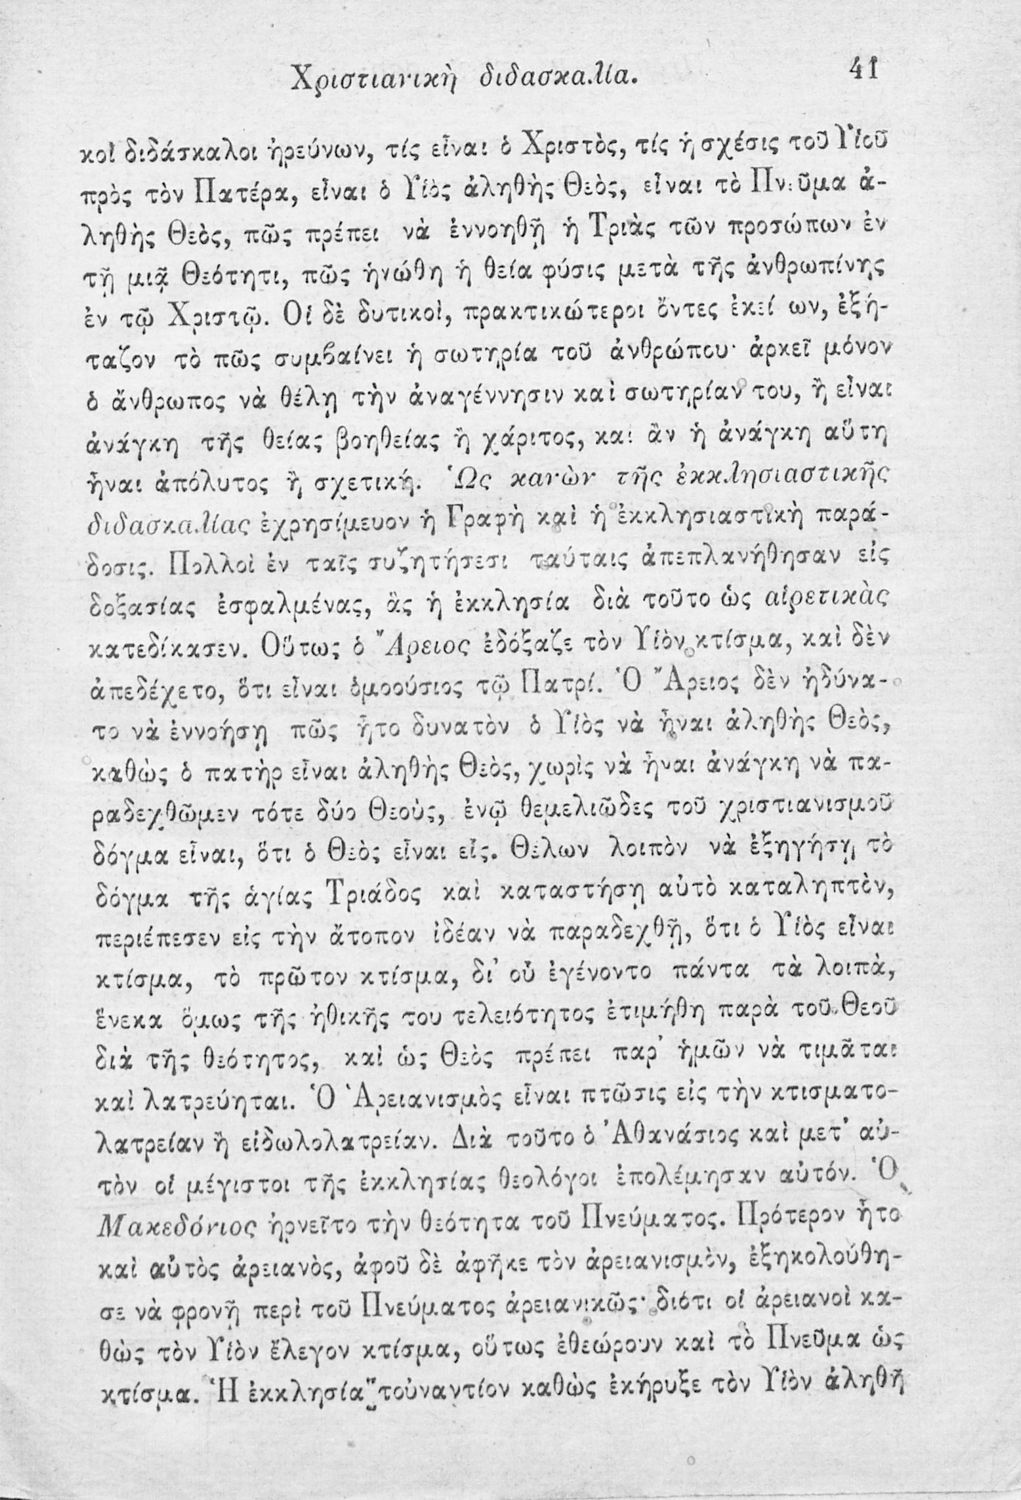 Χριστιανικὴ διδασκαλία. 41
κοὶ διδάσκαλοι ἠρεύνων, τίς εἶναι ὁ Χριστὸς, τίς ἡ σχέσις τοῦ Υἱοῦ
πρὸς τὸν Πατέρα, εἶναι ὁ Υἱὸς ἀληθὴς Θεὸς, εἶναι τὸ Πνεῦμα ἀ-
ληθὴς Θεὸς, πῶς πρέπει νὰ ἐννοηθῇ ἡ Τριὰς τῶν προσώπων ἐν
τῇ μιᾷ Θεότητι, πῶς ἡνώθη ἡ θεία φύσις μετὰ τῆς ἀνθρωπίνης
ἐν τῷ Χριστῷ. Οἱ δὲ δυτικοὶ, πρακτικώτεροι ὄντες ἐκεί ων, ἐξή-
ταζον τὸ πῶς συμβαίνει ἡ σωτηρία τοῦ ἀνθρώπου· ἀρκεῖ μόνον
ὁ ἄνθρωπος νὰ θέλῃ τὴν ἀναγέννησιν καὶ σωτηρίαν του, ἢ εἶναι
ἀνάγκη τῆς θείας βοηθείας ἢ χάριτος, καὶ ἂν ἡ ἀνάγκη αὕτη
ἦναι ἀπόλυτος ἢ σχετική. Ὡς κανὼν τῆς ἐκκλησιαστικῆς
διδασκαλίας ἐχρησίμευον ἡ Γραφὴ καὶ ἡ ἐκκλησιαστικὴ παρά-
δοσις. Πολλοὶ ἐν ταῖς συζητήσεσι ταύταις ἀπεπλανήθησαν εἰς
δοξασίας ἐσφαλμένας, ἃς ἡ ἐκκλησία διὰ τοῦτο ὡς αἱρετικὰς
κατεδίκασεν. Οὕτως ὁ Ἄρειος ἐδόξαζε τὸν Υἱὸν κτίσμα, καὶ δὲν
ἀπεδέχετο, ὅτι εἶναι ὁμοούσιος τῷ Πατρί. Ὁ Ἄρειος δὲν ἠδύνα-
το νὰ ἐννοήσῃ πῶς ἦτο δυνατὸν ὁ Υἱὸς νὰ ἦναι ἀληθὴς Θεὸς,
καθὼς ὁ πατὴρ εἶναι ἀληθὴς Θεὸς, χωρὶς νὰ ἦναι ἀνάγκη νὰ πα-
ραδεχθῶμεν τότε δύο Θεοὺς, ἐνῷ θεμελιῶδες τοῦ χριστιανισμοῦ
δόγμα εἶναι, ὅτι ὁ Θεὸς εἶναι εἷς. Θέλων λοιπὸν νὰ ἐξηγήσῃ τὸ
δόγμα τῆς ἁγίας Τριάδος καὶ καταστήσῃ αὐτὸ καταληπτὸν,
περιέπεσεν εἰς τὴν ἄτοπον ἰδέαν νὰ παραδεχθῇ, ὅτι ὁ Υἱὸς εἶναι
κτίσμα, τὸ πρῶτον κτίσμα, δι' οὗ ἐγένοντο πάντα τὰ λοιπὰ,
ἕνεκα ὅμως τῆς ἠθικῆς του τελειότητος ἐτιμήθη παρὰ τοῦ Θεοῦ
διὰ τῆς θεότητος, καὶ ὡς Θεὸς πρέπει παρ' ἡμῶν νὰ τιμᾶται
καὶ λατρεύηται. Ὁ Ἀρειανισμὸς εἶναι πτῶσις εἰς τὴν κτισματο-
λατρείαν ἢ εἰδωλολατρείαν. Διὰ τοῦτο ὁ Ἀθανάσιος καὶ μετ' αὐ-
τὸν οἱ μέγιστοι τῆς ἐκκλησίας θεολόγοι ἐπολέμησαν αὐτόν. Ὁ
Μακεδόνιος ἠρνεῖτο τὴν θεότητα τοῦ Πνεύματος. Πρότερον ἦτο
καὶ αὐτὸς ἀρειανὸς, ἀφοῦ δὲ ἀφῆκε τὸν ἀρειανισμὸν, ἐξηκολούθη-
σε νὰ φρονῇ περὶ τοῦ Πνεύματος ἀρειανικῶς· διότι οἱ ἀρειανοὶ κα-
θὼς τὸν Υἱὸν ἔλεγον κτίσμα, οὕτως ἐθεώρουν καὶ τὸ Πνεῦμα ὡς
κτίσμα. Ἡ ἐκκλησία τοὐναντίον καθὼς ἐκήρυξε τὸν Υἱὸν ἀληθῆ